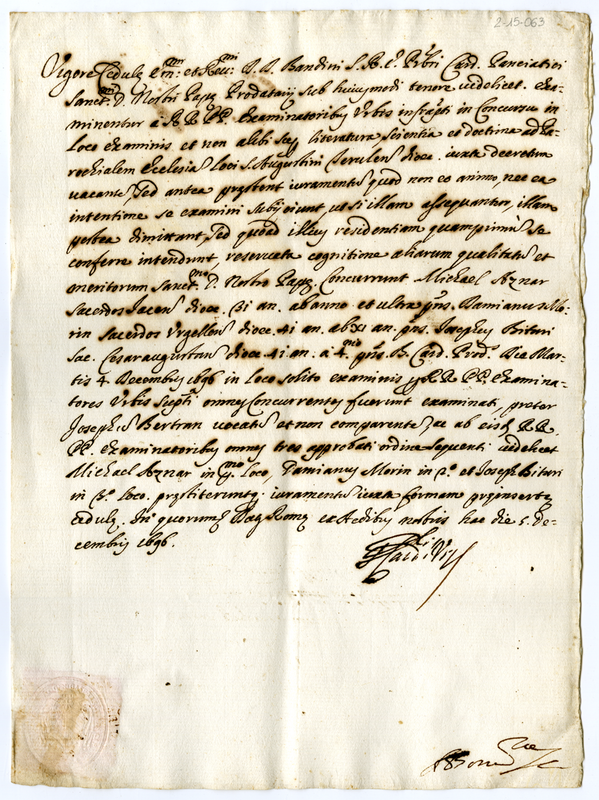 2-15-063
Vigore Cedulæ Em.mi et Rev.mi D. D. Bandini S. R. E. Pr̃bri Card. Panciatici
Sanct.mi D. Nostri Papæ Prodatarij sub huiusmodi tenore videlicet. Exa-
minentur à RR. PP. Examinatoribus Urbis infra͂pti in Concursu in
Loco Examinis et non alibi seu literatura, scientia et doctrina ad Pa-
rochialem Ecclesiã Loci S. Augustini Terulen͂ dioce. iuxta decretum
vacante, sed antea præstent iuramentũ quod non eo animo, nec ea
intentione se examini subijciunt, ut si illam assequantur, illam
postea dimittant, sed quod illius residentiam quamprimũ se
conferre intendunt, reservata cognitione aliarum qualitatũ et
meritorum Sanct.mo D. Nostro Papæ. Concurrunt Michael Aznar
sacerdos Jacen͂ dioce. 31 an. ab anno et ultra p͂ns. Damianus Mo-
rin sacerdos Urgellen͂ dioce. 41 an. ab XI an. p͂ns. Joseph Bituri
sac. Cesaraugustan͂ dioce. 41 an. à 4.mo p͂ns. B. Card. Prod.s Die Mar-
tis 4. Decembris 1696 in Loco solito examinis p RR. PP. Examina-
tores Urbis sup͂pti omnes Concurrentes fuerunt examinati, preter
Joseph Bertran vocatũ et non comparentẽ ac ab eisd. RR.
PP. Examinatoribus omnes tres approbati ordine sequenti videlicet
Michael Aznar in p.mo Loco, Damianus Morin in 2.o et Joseph Bituri
in 3.o Loco. præstiteruntq. iuramentũ iuxta formam præinsertæ
Cedulæ. In quorum Dat. Romæ ex Aedibus nobis hac die 5. De-
cembris 1696.